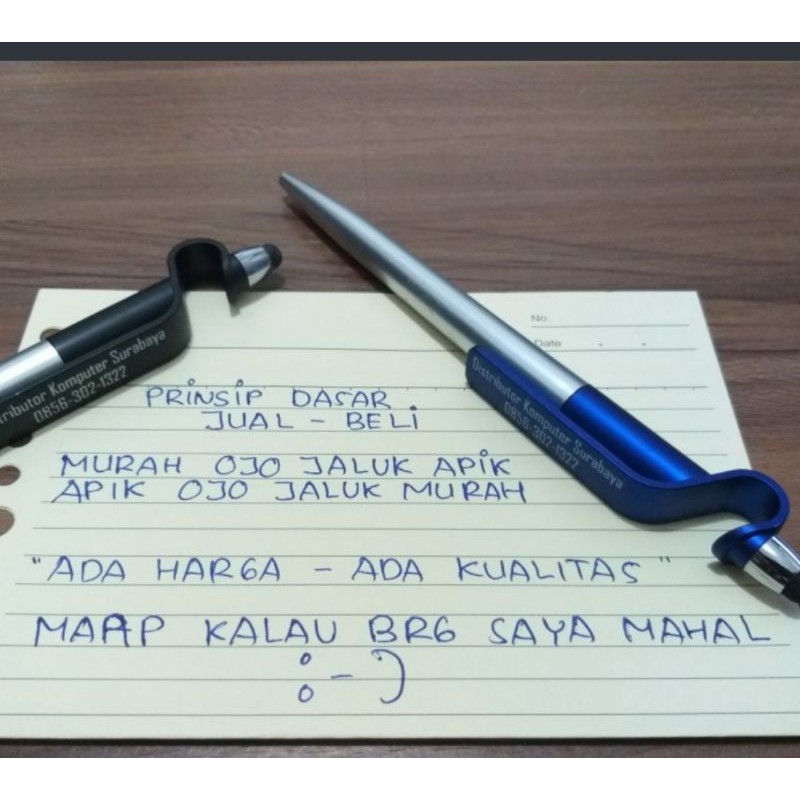 No.
Date
Distributor Komputer Surabaya
0856-302-1322
tributor Komputer Surabaya
0856-302-1322
PRINSIP DASAR
JUAL - BELI
MURAH OJO JALUK APIK
APIK OJO JALUK MURAH
"ADA HARGA - ADA KUALITAS"
MAAP KALAU BRG SAYA MAHAL
:-)